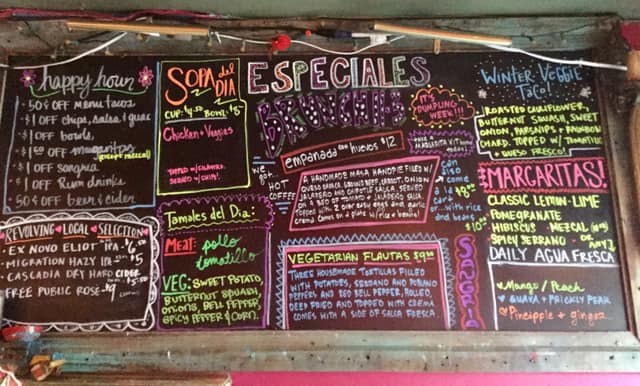 happy hour
• 50¢ OFF menu tacos
• $1 OFF chips, salsa, guac
• $1 OFF bowls,
• $1.00 OFF margaritas
(except mezcal)
• $1 OFF sangria
• $1 OFF Rum drinks
• 50¢ OFF beer & cider
REVOLVING LOCAL SELECTION
• EX NOVO ELIOT IPA $6.50
• MIGRATION HAZY IPA $5.50
• CASCADIA DRY HARD CIDER $5
FREE PUBLIC ROSÉ $9 CAN
SOPA del DIA
CUP: $4.50 BOWL: $5
Chicken + Veggies
TOPPED W/ CILANTRO,
SERVED W/ CHIPS!
Tamales del Dia:
MEAT: pollo
tomatillo
VEG: SWEET POTATO,
BUTTERNUT SQUASH,
ONIONS, BELL PEPPER,
SPICY PEPPER & CORN.
ESPECIALES
BRUNCH
IT'S
DUMPLING
WEEK!!!
empanada con huevos $12
we
got
HOT
COFFEE
A HANDMADE MASA HANDPIE FILLED W/
QUESO OAXACA, GROUND BEEF, CARROT, ONION,
JALAPEÑO AND CHIPOTLE SALSA. SERVED
ON A BED OF TOMATO & JALAPEÑO SALSA
TOPPED WITH 2 over easy eggs and garlic
crema. Comes on a plate w/ rice & beans!
can
also
come
a la
carte $9.00
with rice
and beans
$10.00
VEGETARIAN FLAUTAS $9.00
THREE HOUSEMADE TORTILLAS FILLED
WITH POTATOES, SERRANO AND POBLANO
PEPPERS AND RED BELL PEPPER, ROLLED,
DEEP FRIED AND TOPPED WITH CREMA
COMES WITH A SIDE OF SALSA FRESCA.
SANGRIA
WINTER VEGGIE
TACO!
ROASTED CAULIFLOWER,
BUTTERNUT SQUASH, SWEET
ONION, PARSNIPS + RAINBOW
CHARD. TOPPED W/ TOMATILLO
+ QUESO FRESCO!
MARGARITAS!
CLASSIC LEMON-LIME
POMEGRANATE
HIBISCUS • MEZCAL (ANY)
SPICY SERRANO
DAILY AGUA FRESCA
Mango / Peach
GUAVA + PRICKLY PEAR
Pineapple + ginger